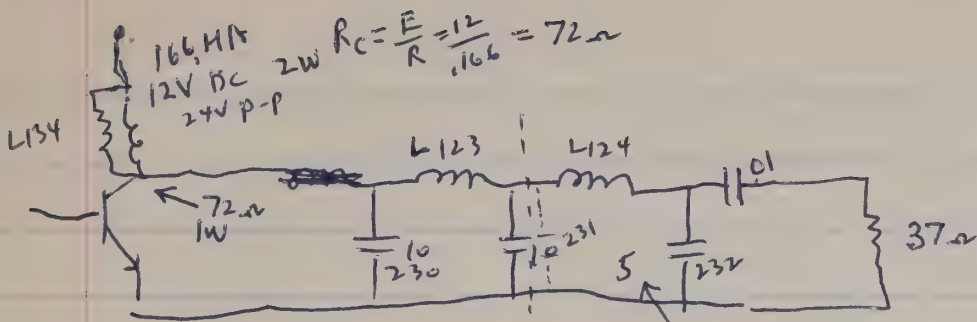 166 MA
12V DC 2W Rc = E/R = 12/.166 = 72Ω
24V P-P
L134
L123
L124
.01
72Ω
1W
10
230
10
231
5
232
37Ω